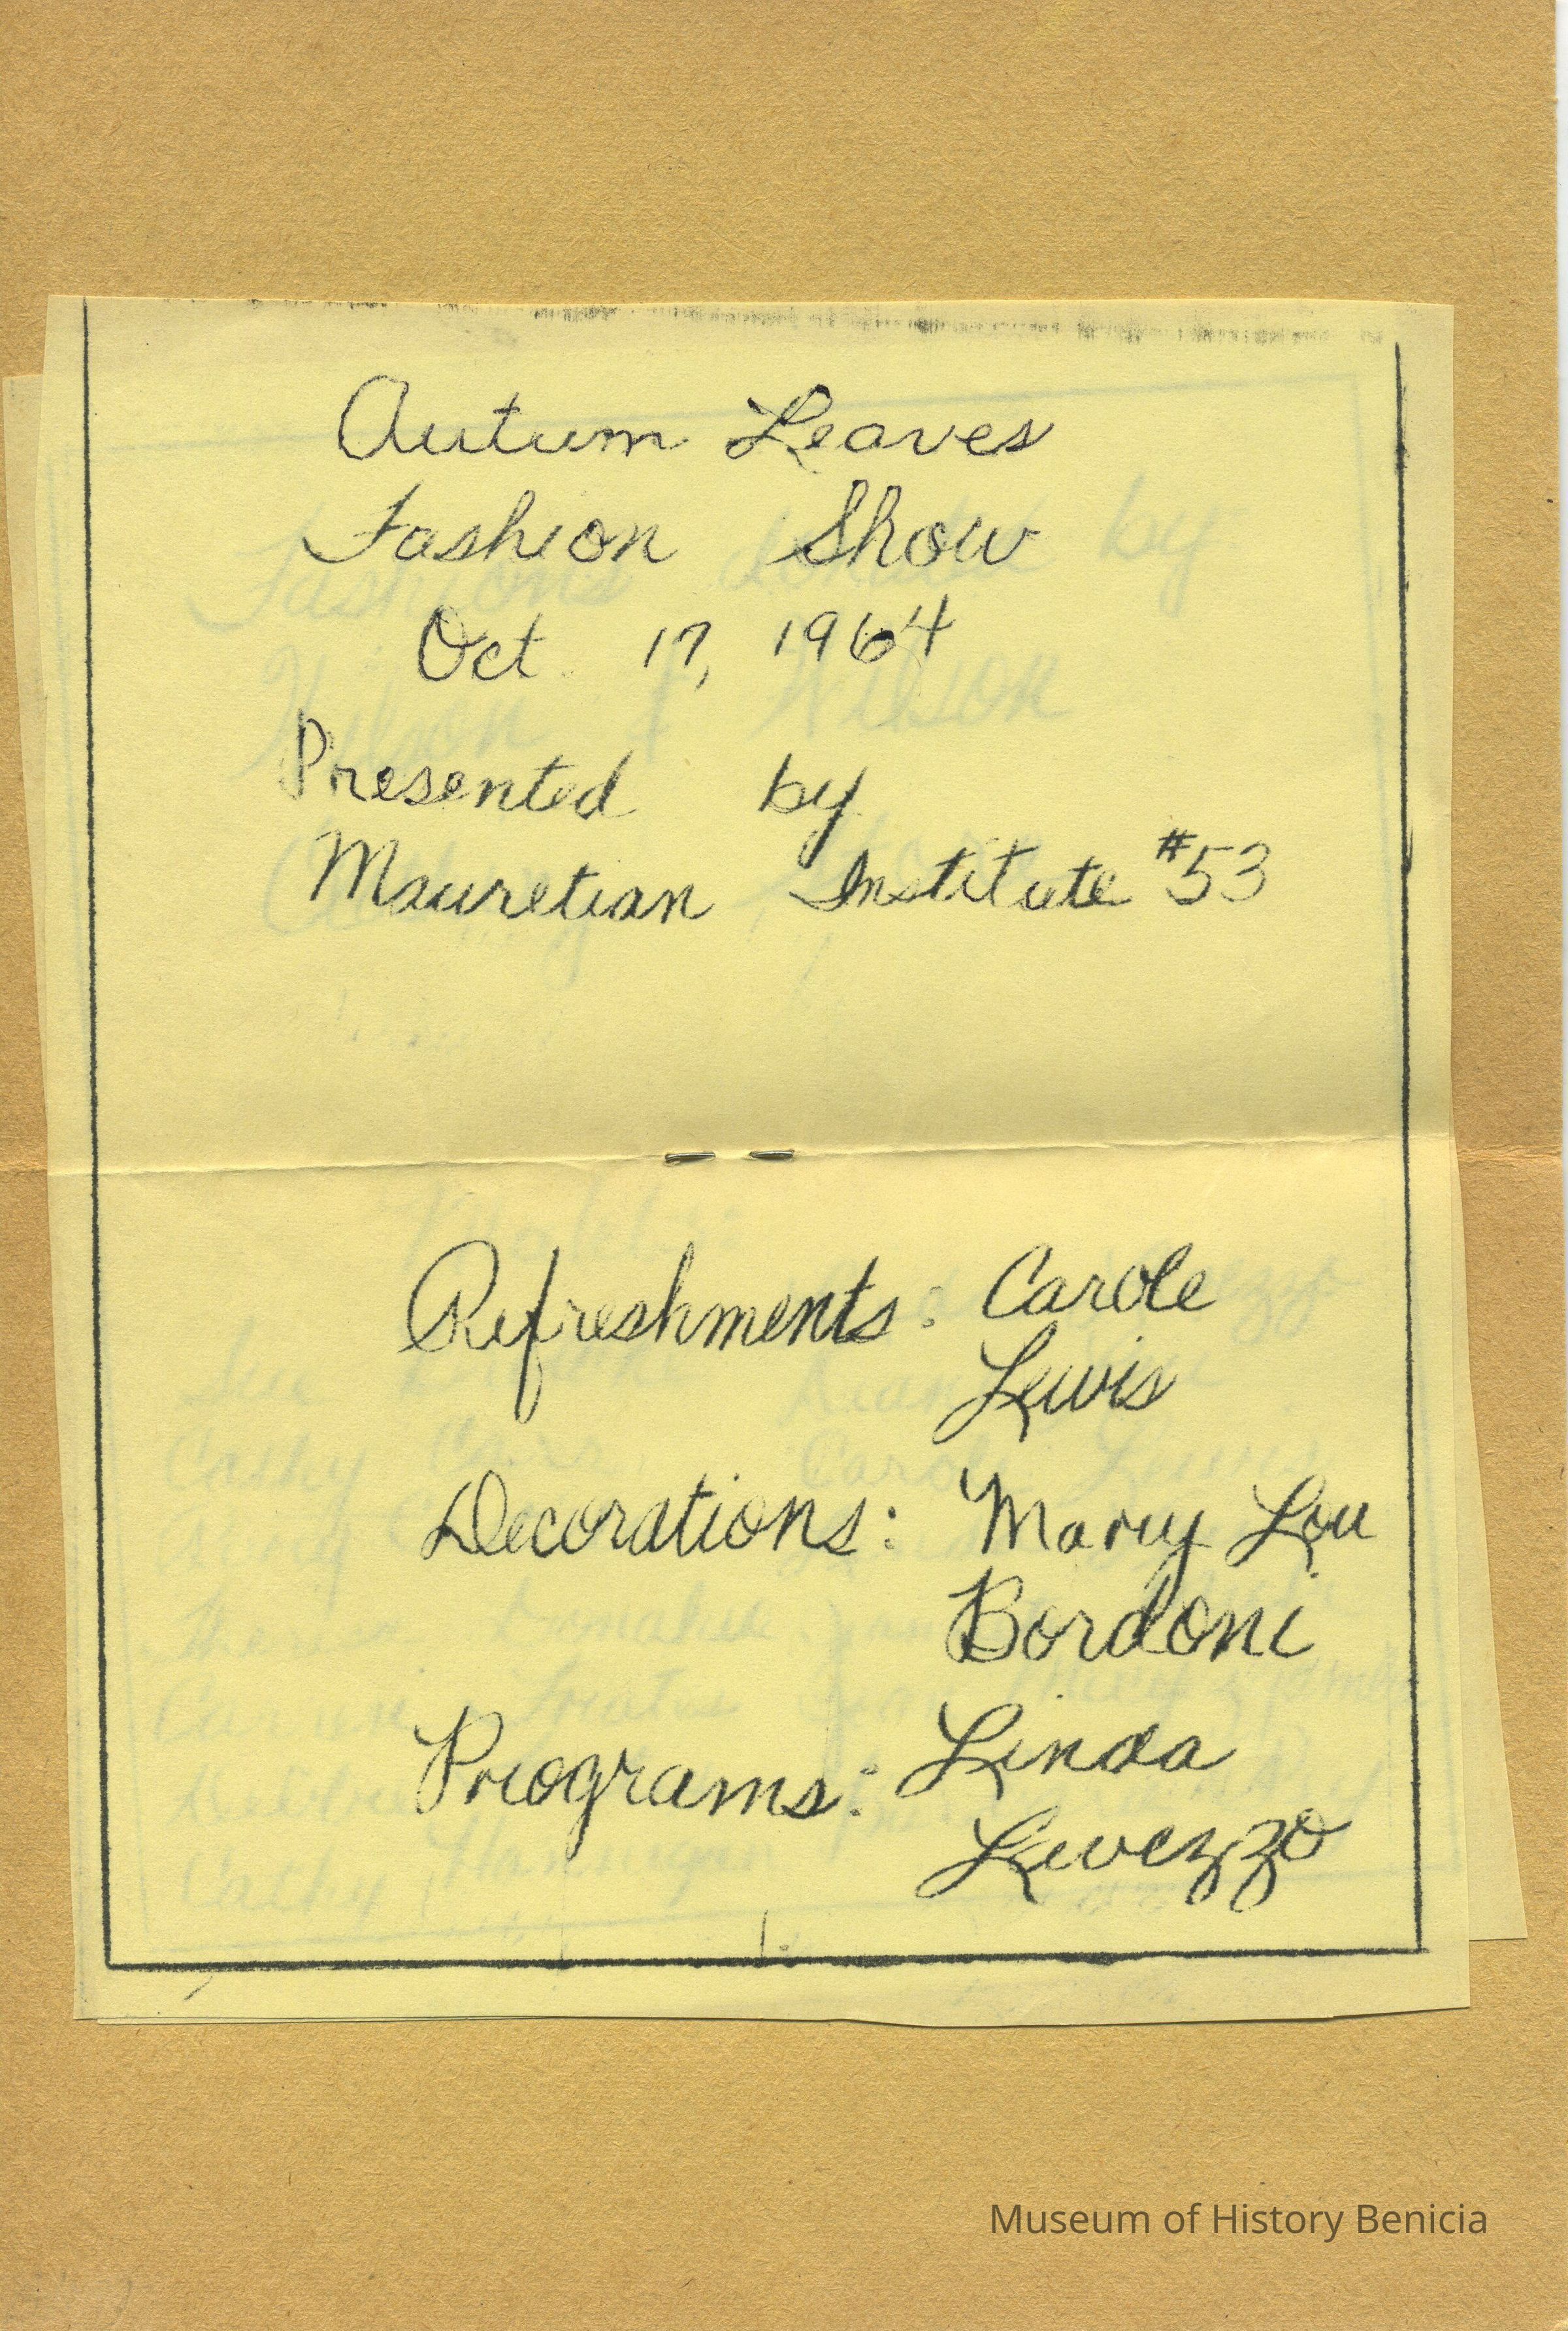 Autum Leaves
Fashion Show
Oct. 17, 1964
Presented by
Mauretian Institute #53
Refreshments: Carole
Lewis
Decorations: Mary Lou
Bordoni
Programs: Linda
Levezzo
Museum of History Benicia